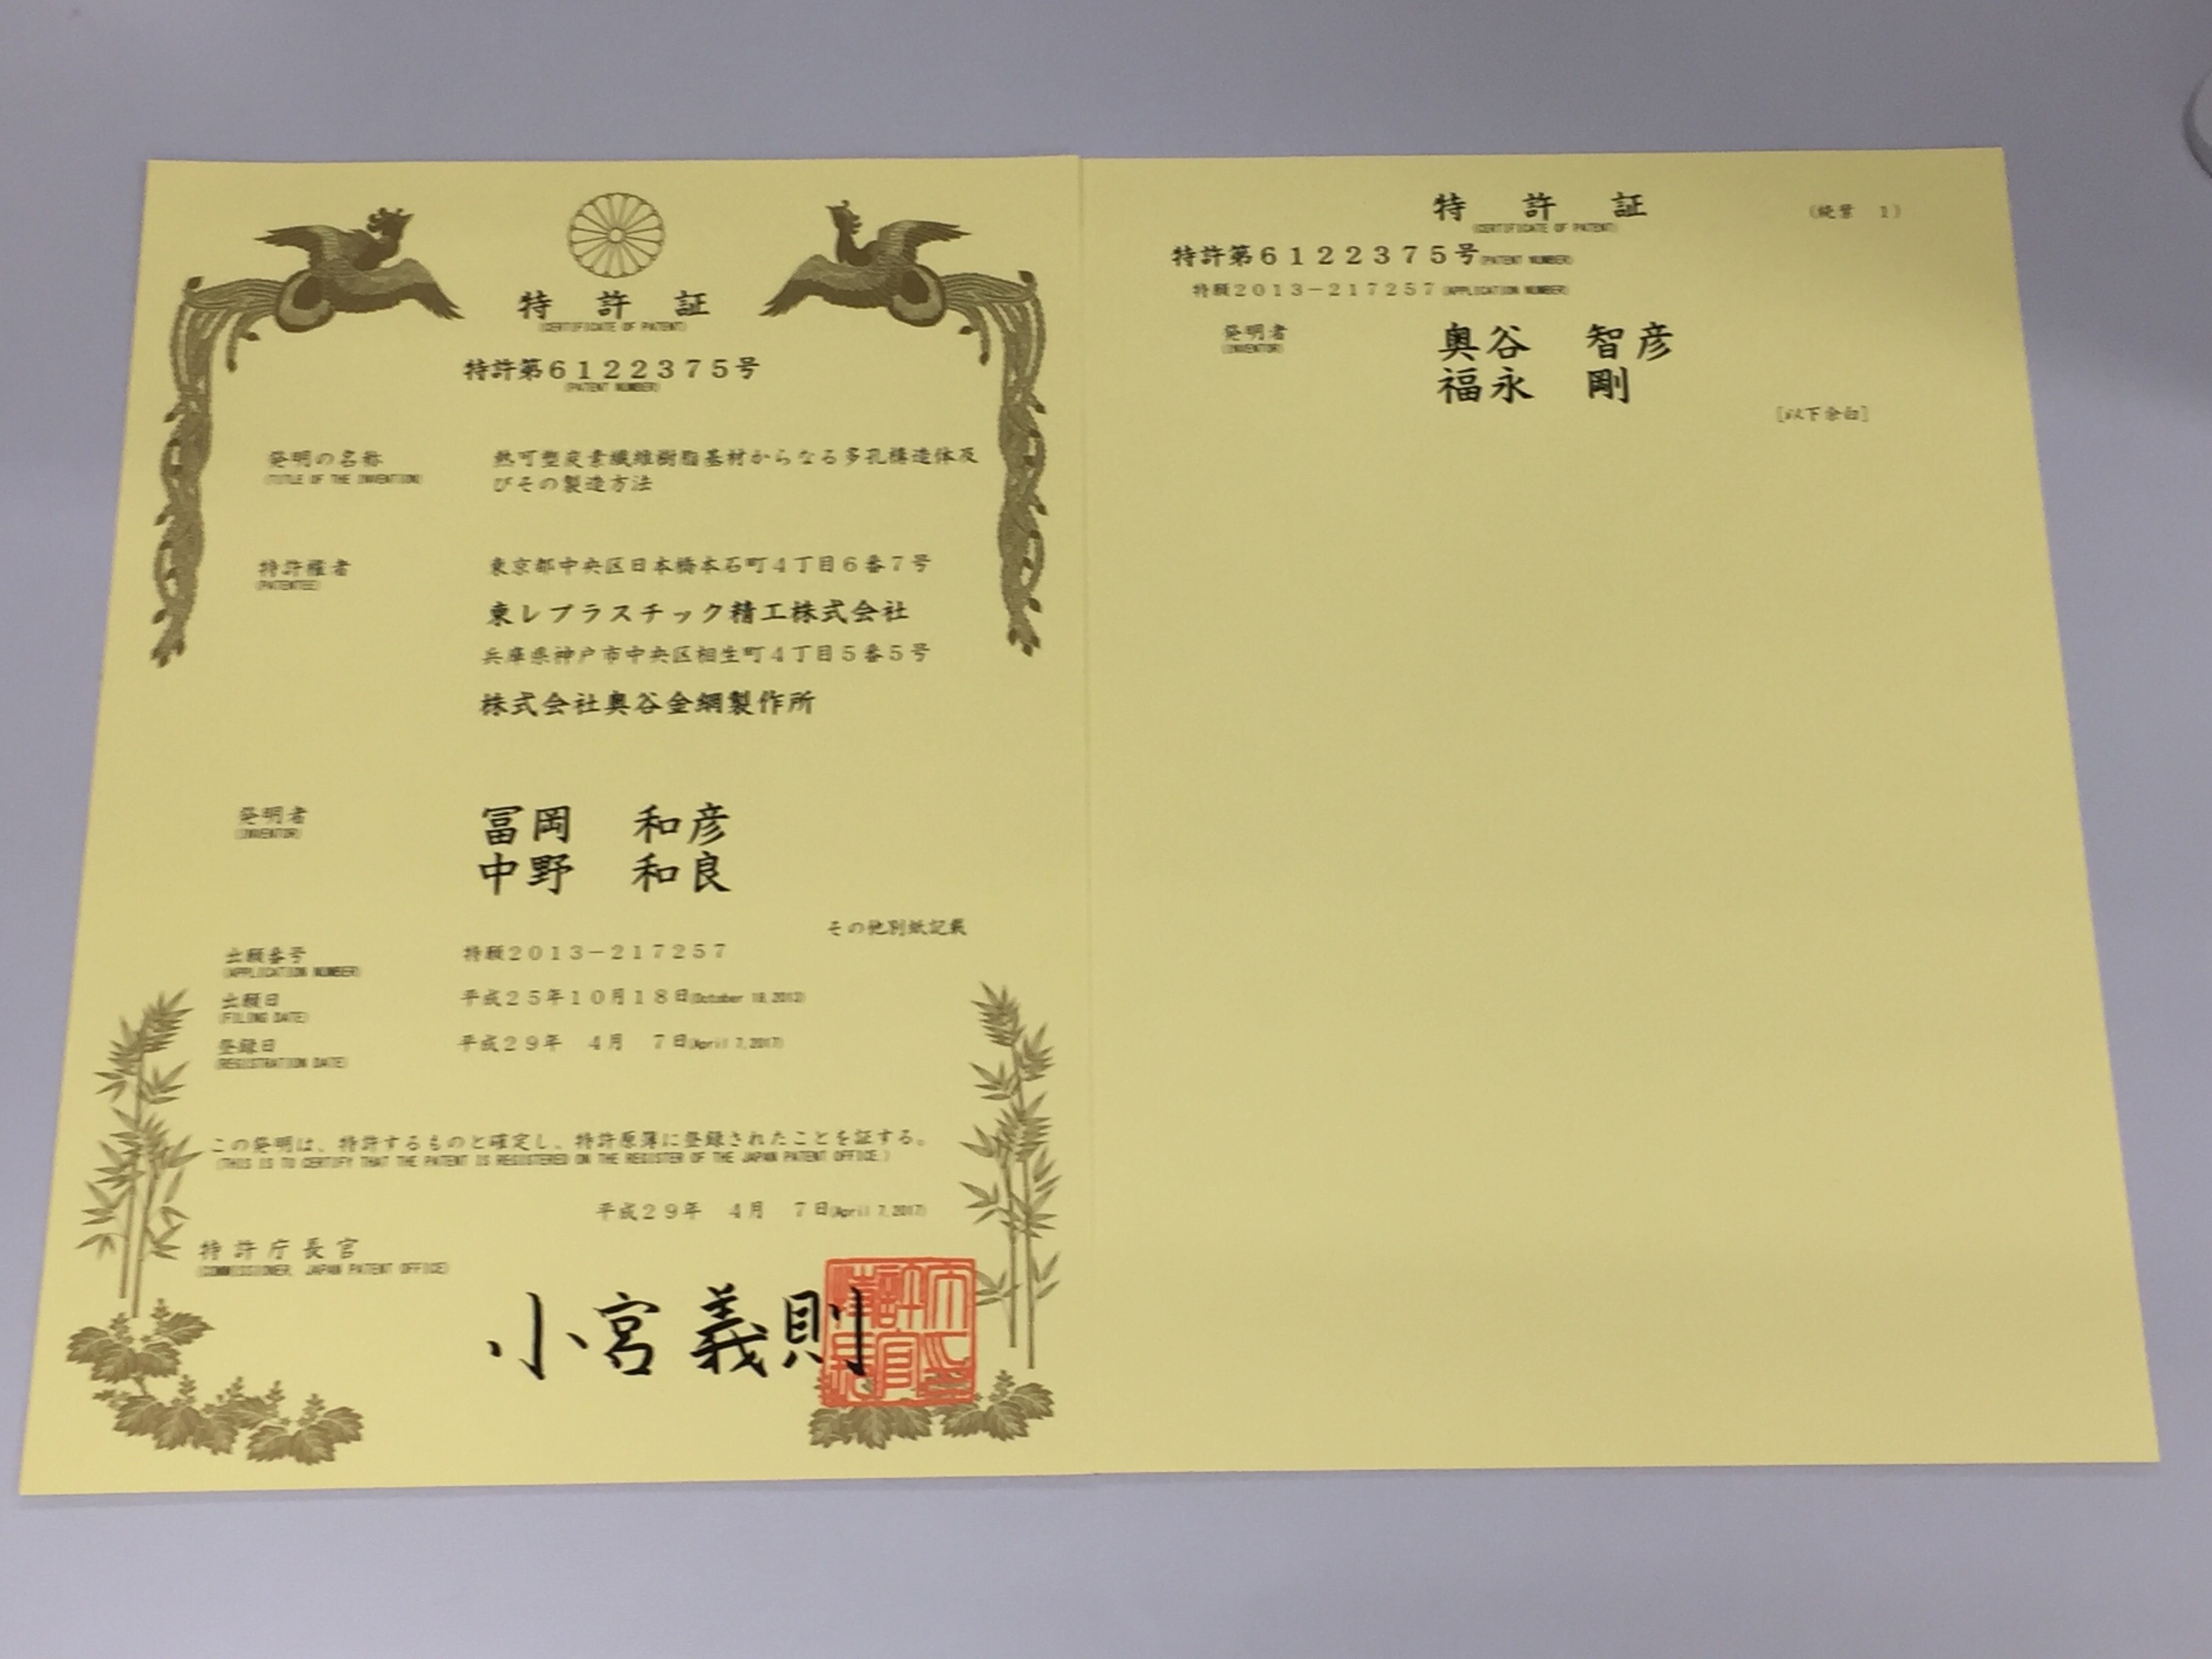 特許証
(CERTIFICATE OF PATENT)
特許第6122375号
(PATENT NUMBER)
発明の名称
(TITLE OF THE INVENTION)
熱可塑炭素繊維樹脂基材からなる多孔構造体及
びその製造方法
特許権者
(PATENTEE)
東京都中央区日本橋本石町4丁目6番7号
東レプラスチック精工株式会社
兵庫県神戸市中央区相生町4丁目5番5号
株式会社奥谷金網製作所
発明者
(INVENTOR)
冨岡 和彦
中野 和良
その他別紙記載
出願番号
(APPLICATION NUMBER)
特願2013-217257
出願日
(FILING DATE)
平成25年10月18日(October 18,2013)
登録日
(REGISTRATION DATE)
平成29年 4月 7日(April 7,2017)
この発明は、特許するものと確定し、特許原簿に登録されたことを証する。
(THIS IS TO CERTIFY THAT THE PATENT IS REGISTERED ON THE REGISTER OF THE JAPAN PATENT OFFICE.)
平成29年 4月 7日(April 7,2017)
特許庁長官
(COMMISSIONER, JAPAN PATENT OFFICE)
小宮義則
特許証
(CERTIFICATE OF PATENT)
(続葉 1)
特許第6122375号(PATENT NUMBER)
特願2013-217257(APPLICATION NUMBER)
発明者
(INVENTOR)
奥谷 智彦
福永 剛
[以下余白]